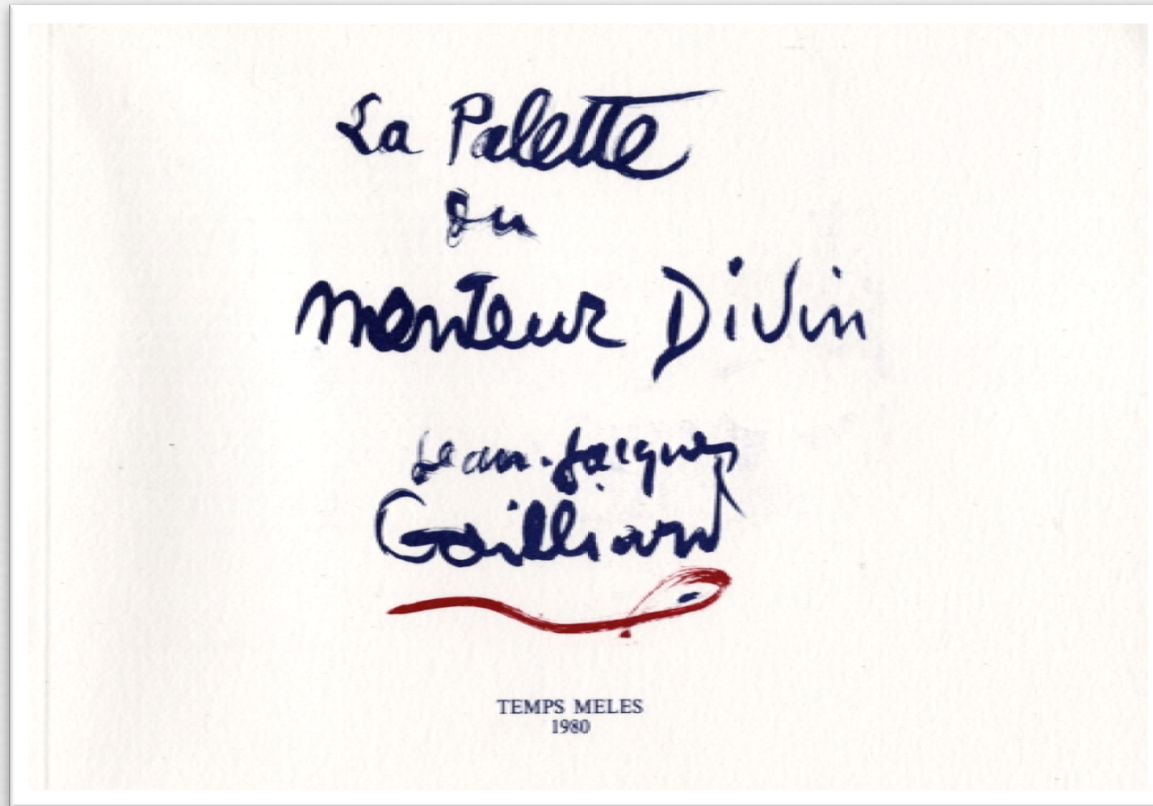 La Palette
ou
menteur Divin
Jean-Jacques
Gailliard
TEMPS MELES
1980